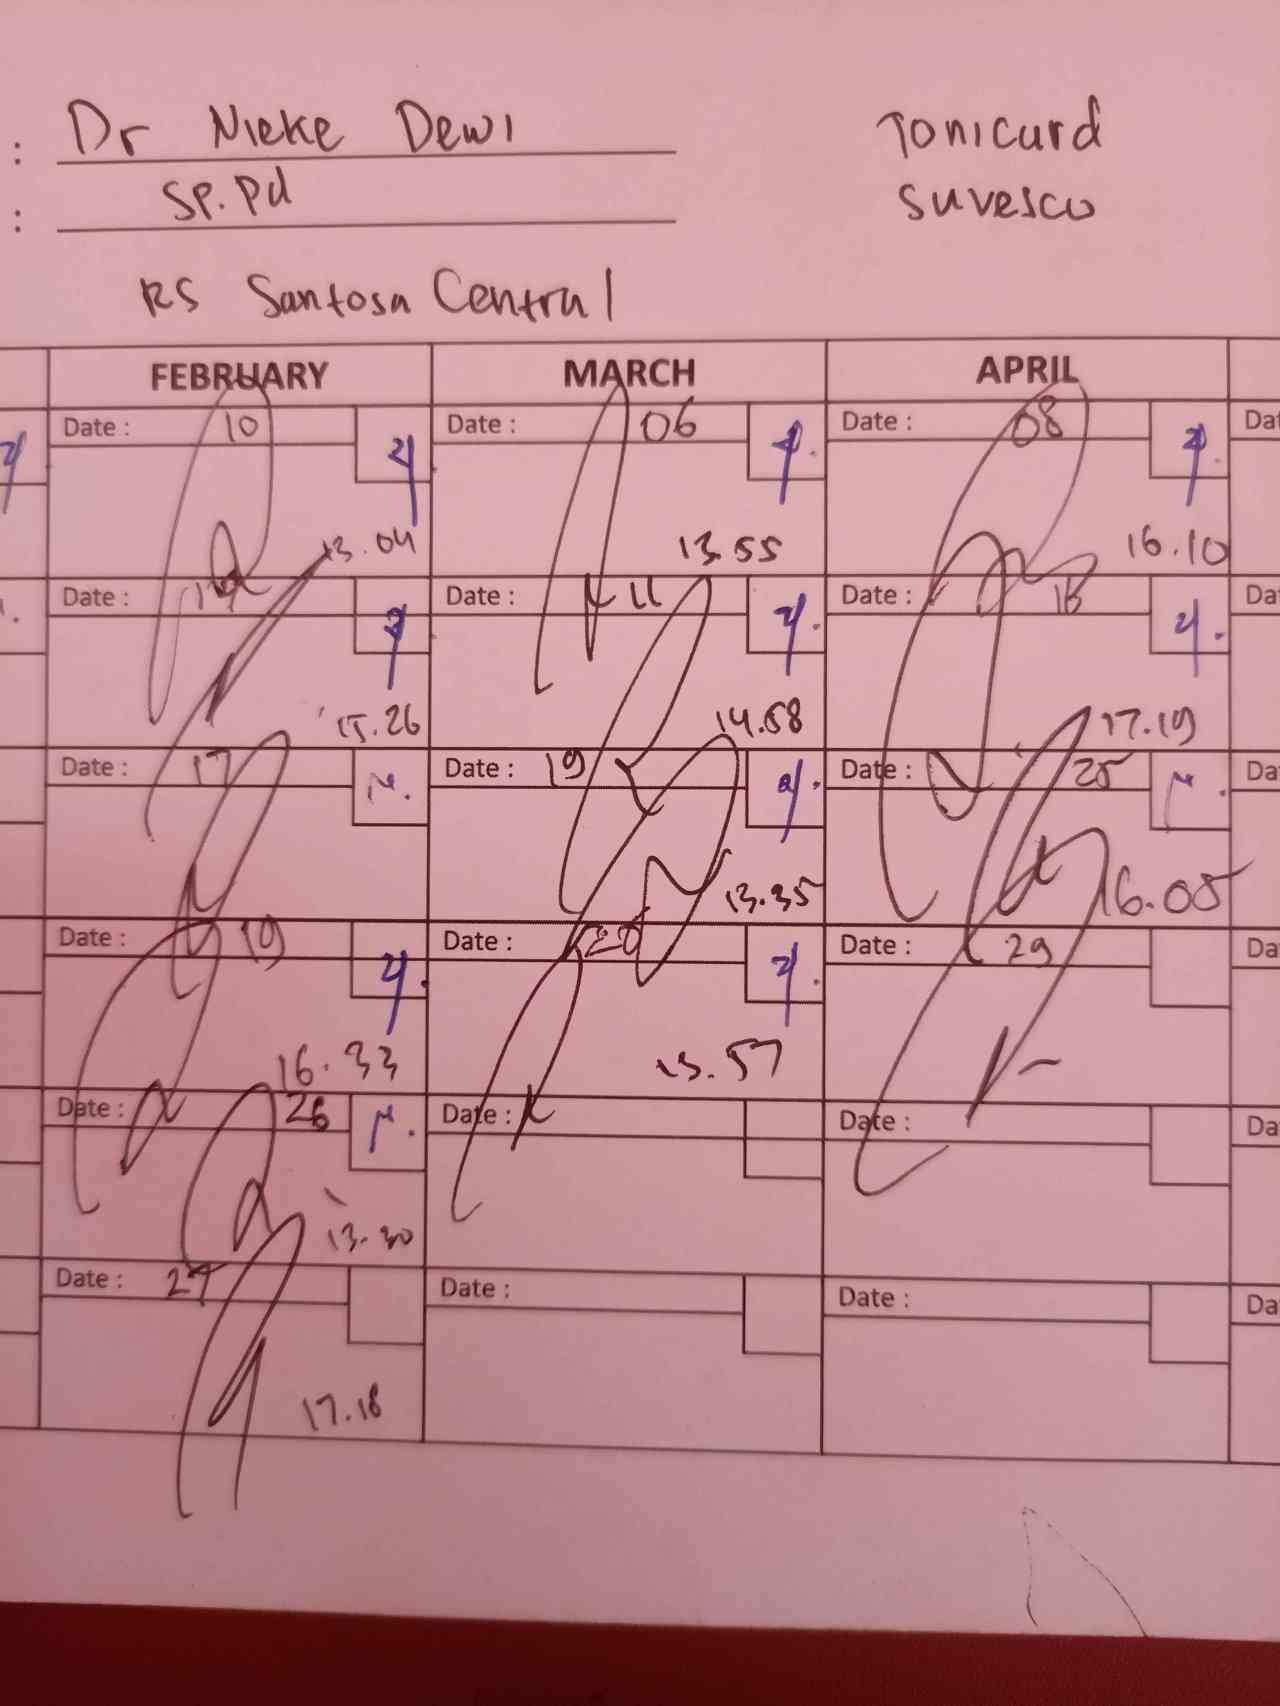 : Dr Nieke Dewi
Tonicard
: Sp.Pd
Suvesco
RS Santosa Central
FEBRUARY MARCH APRIL
Date : 10 Date : 06 Date : 08 Da
13.04 13.55 16.10
Date : Date : 11 Date : 18 Da
15.26 14.58 17.19
Date : 17 Date : 19 Date : 25 Da
13.35 16.05
Date : 19 Date : Date : 29 Da
16.33 13.57
Date : 26 Date : Date : Da
13.30
Date : 27 Date : Date : Da
17.18